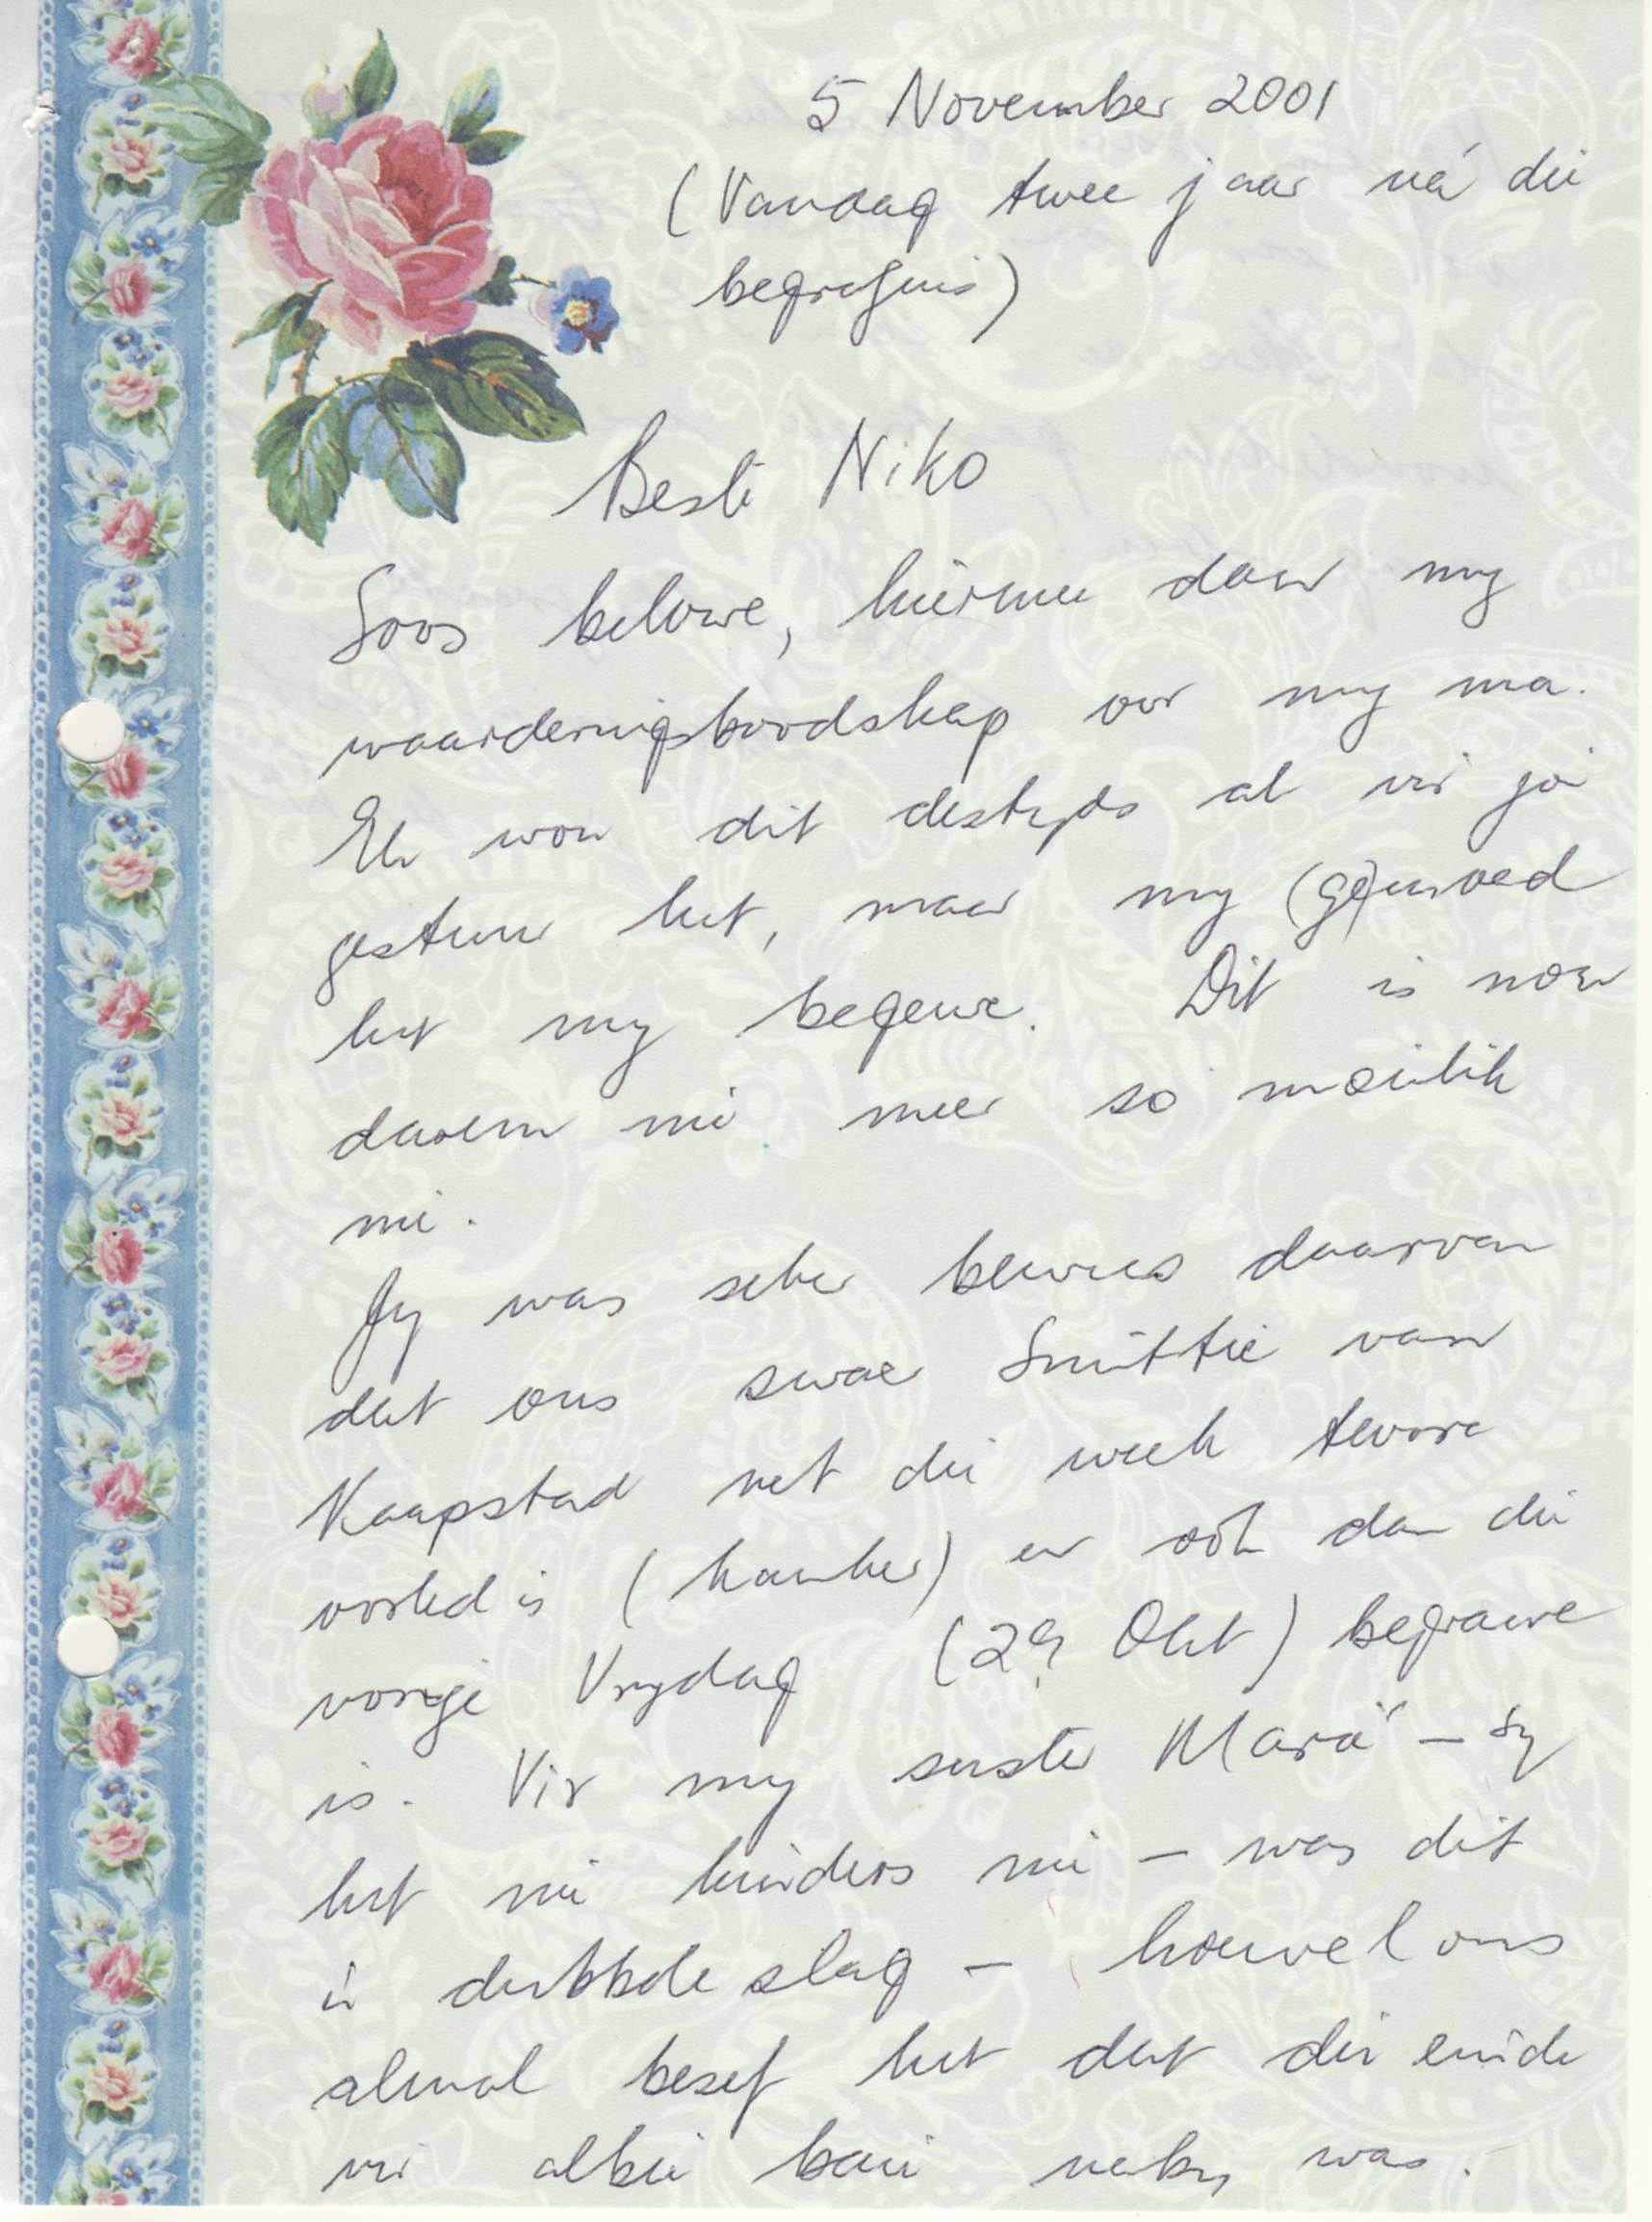 5 November 2001
(Vandag twee jaar ná die
begrafnis)
Beste Niko
Soos belowe, hiermee dan my
waarderingsboodskap oor my ma.
Ek wou dit destyds al vir jou
gestuur het, maar my (ge)moed
het my begewe. Dit is nou
darem nie meer so moeilik
nie.
Jy was seker bewus daarvan
dat ons swaer Smittie van
Kaapstad net die week tevore
oorlede is (kanker) en ook dan die
vorige Vrydag (29 Okt) begrawe
is. Vir my suster Mara – sy
het nie kinders nie – was dit
'n dubbele slag – hoewel ons
almal besef het dat die einde
vir albei baie naby was.